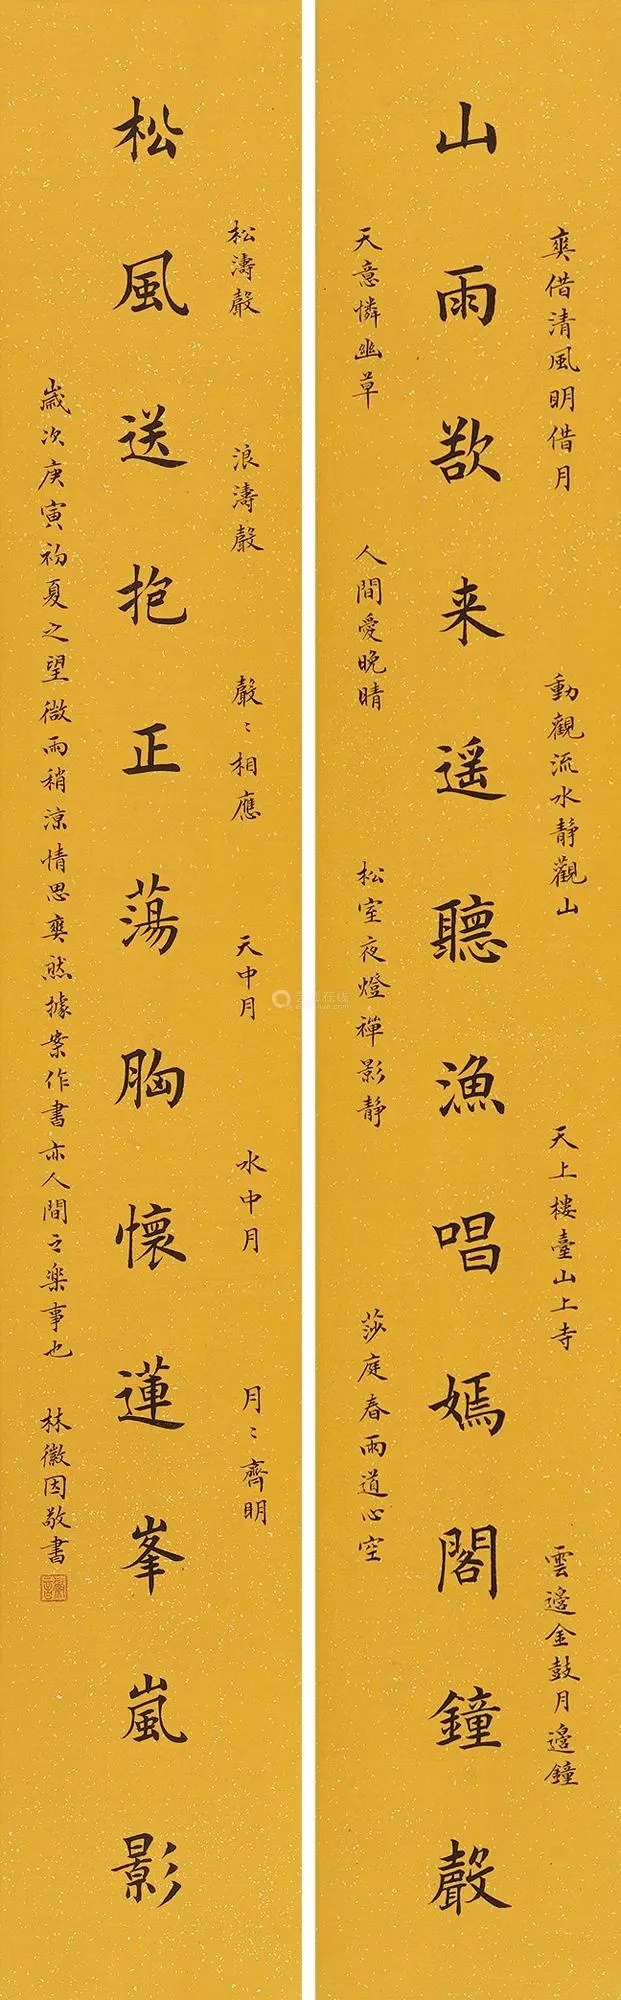 山雨欲来遥聽漁唱嫣閣鐘聲
爽借清風明借月
動觀流水靜觀山
天上樓臺山上寺
雲邊金鼓月邊鐘
天意憐幽草
人間愛晚晴
松室夜燈禪影靜
莎庭春雨道心空
松風送抱正蕩胸懷蓮峯嵐影
松濤聲
浪濤聲
聲〻相應
天中月
水中月
月〻齊明
歲次庚寅初夏之望微雨稍涼情思爽然據案作書亦人間之樂事也
林徽因敬書